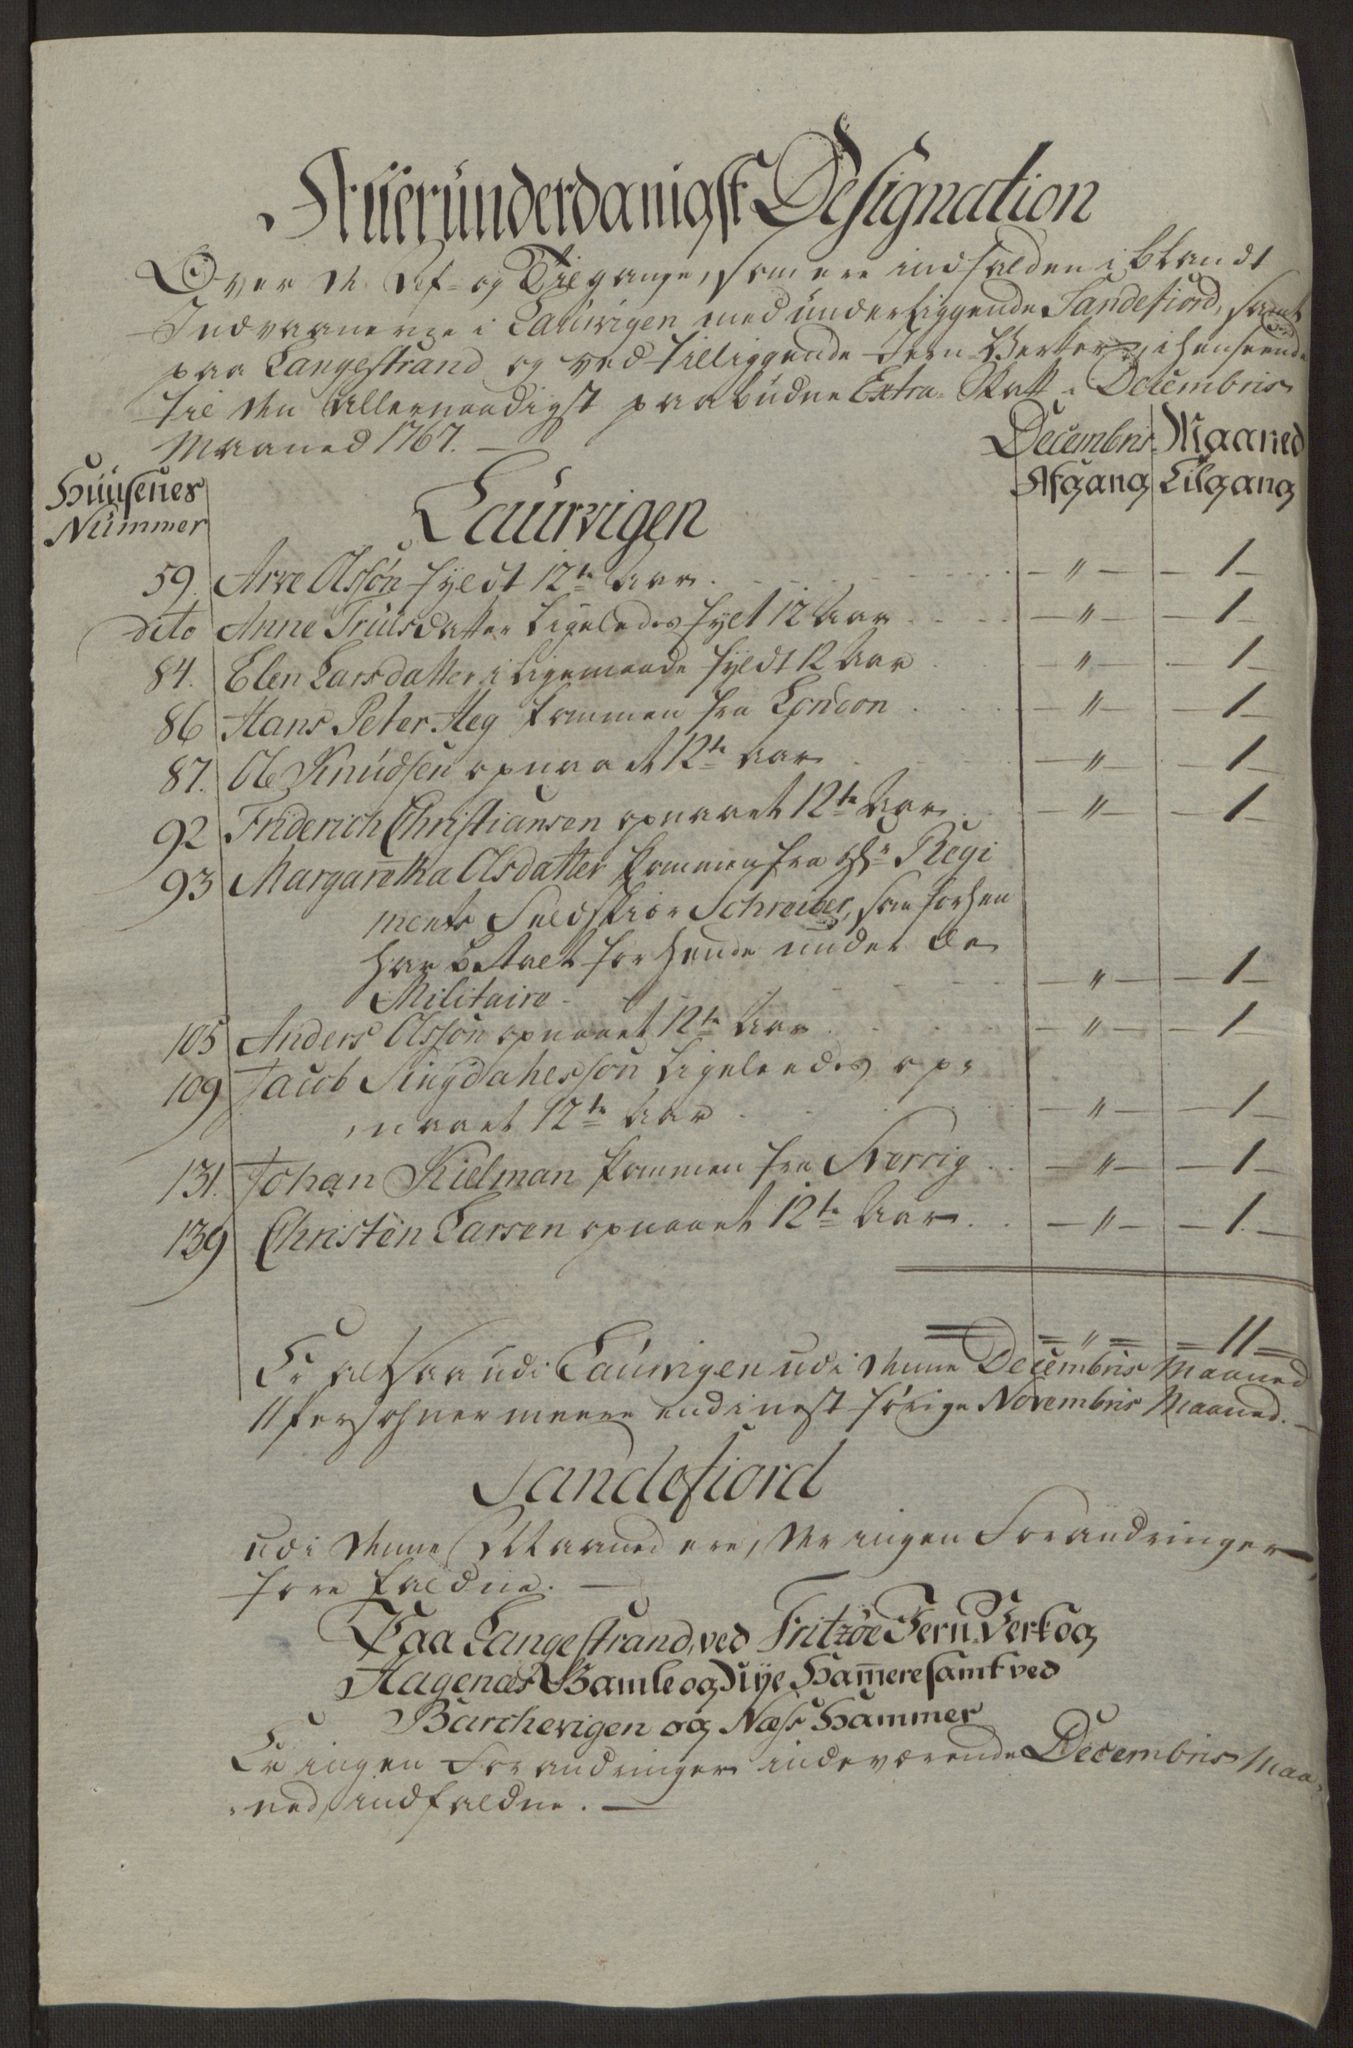 Allerunderdanigst Designation
Over de Af- og Tilgange, som ere indfalden iblandt
Indvaanerne i Laurvigen med underliggende Sandefiord, samt
paa Langestrand og ved tilliggende Jern-Verker, i henseende
til den allernaadigst paabudne Extra-Skatt i Decembris
Maaned 1767. —
Decembris Maaned
Huusenes Nummer Laurvigen Afgang Tilgang
59. Arve Olssøn fyldt 12te Aar — " — — 1 —
dito Anne Truls Datter ligeledes fylt 12 Aar — " — — 1 —
84. Elen Larsdatter i ligemaade fyldt 12 Aar " — 1
86 Hans Peter Heg kommen fra London — " — — 1 —
87. Ole Knudsen opnaaet 12te Aar — " — — 1
92 Friderich Christiansen opnaaet 12te Aar — " — — 1 —
93 Margaretha Olsdatter kommen fra Hr Regi
ments Feldskier Schreiber, som forhen
har betalt for hende under de
Militaire — " — — 1 —
105 Anders Olssøn opnaaet 12te Aar — " — — 1
109 Jacob Ligeledes op-
naaet 12te Aar — " — — 1 —
131. Johan Kielman kommen fra Sverrig — " — — 1 —
139 Christen Larsen opnaaet 12te Aar — " — — 1. —
= " = = 11 =
Er altsaa udi Laurvigen udi denne Decembris Maaned
11 Persohner meere end i nest forige Novembris Maaned. —
Sandefiord
udi denne Maaned ere der ingen Forandringer
forefaldne. —
Paa Langestrand, ved Fritzöe Jern-Verk og
Hagenæs Gamle og Nye Hamere samt ved
Barchevigen og Næss Hammer
Er ingen Forandringer indeværende Decembris Maa-
ned, indfaldne. —